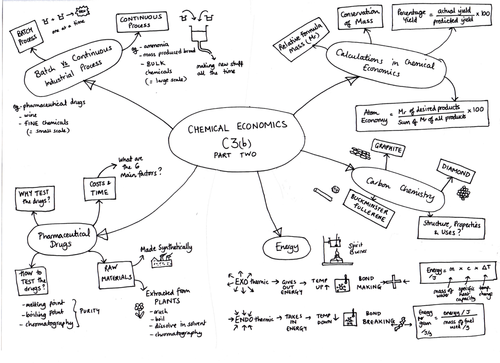 BATCH
PROCESS
one at a time
CONTINUOUS
PROCESS
eg - ammonia
- mass produced bread
- BULK
chemicals
(= large scale)
making new stuff
all the time
Batch Vs Continuous
Industrial Process
eg - pharmaceutical drugs
- wine
- FINE chemicals
(= small scale)
Relative formula
mass (Mr)
Conservation
of Mass
Percentage
Yield = actual yield × 100
predicted yield
Calculations in Chemical
Economics
Atom
Economy = Mr of desired products × 100
Sum of Mr of all products
CHEMICAL ECONOMICS
C3(b)
PART TWO
GRAPHITE
DIAMOND
Carbon Chemistry
BUCKMINSTER
FULLERENE
Structure, Properties
& Uses?
What are
the 6
Main factors?
WHY TEST
the drugs?
COSTS &
TIME
Pharmaceutical
Drugs
HOW TO
TEST the
drugs?
RAW
MATERIALS
Made Synthetically
- melting point
- boiling point
- chromatography
PURITY
Extracted from
PLANTS
- crush
- boil
- dissolve in solvent
- chromatography
Energy
Spirit
Burner
EXO thermic
GIVES OUT
ENERGY
TEMP
UP↑
BOND
MAKING
ENDO thermic
TAKES IN
ENERGY
TEMP
DOWN↓
BOND
BREAKING
Energy
/J = m × c × ΔT
mass of water
specific heat
capacity
temp.
change
Energy
per
gram
J/g = energy /J
mass of fuel
used /g